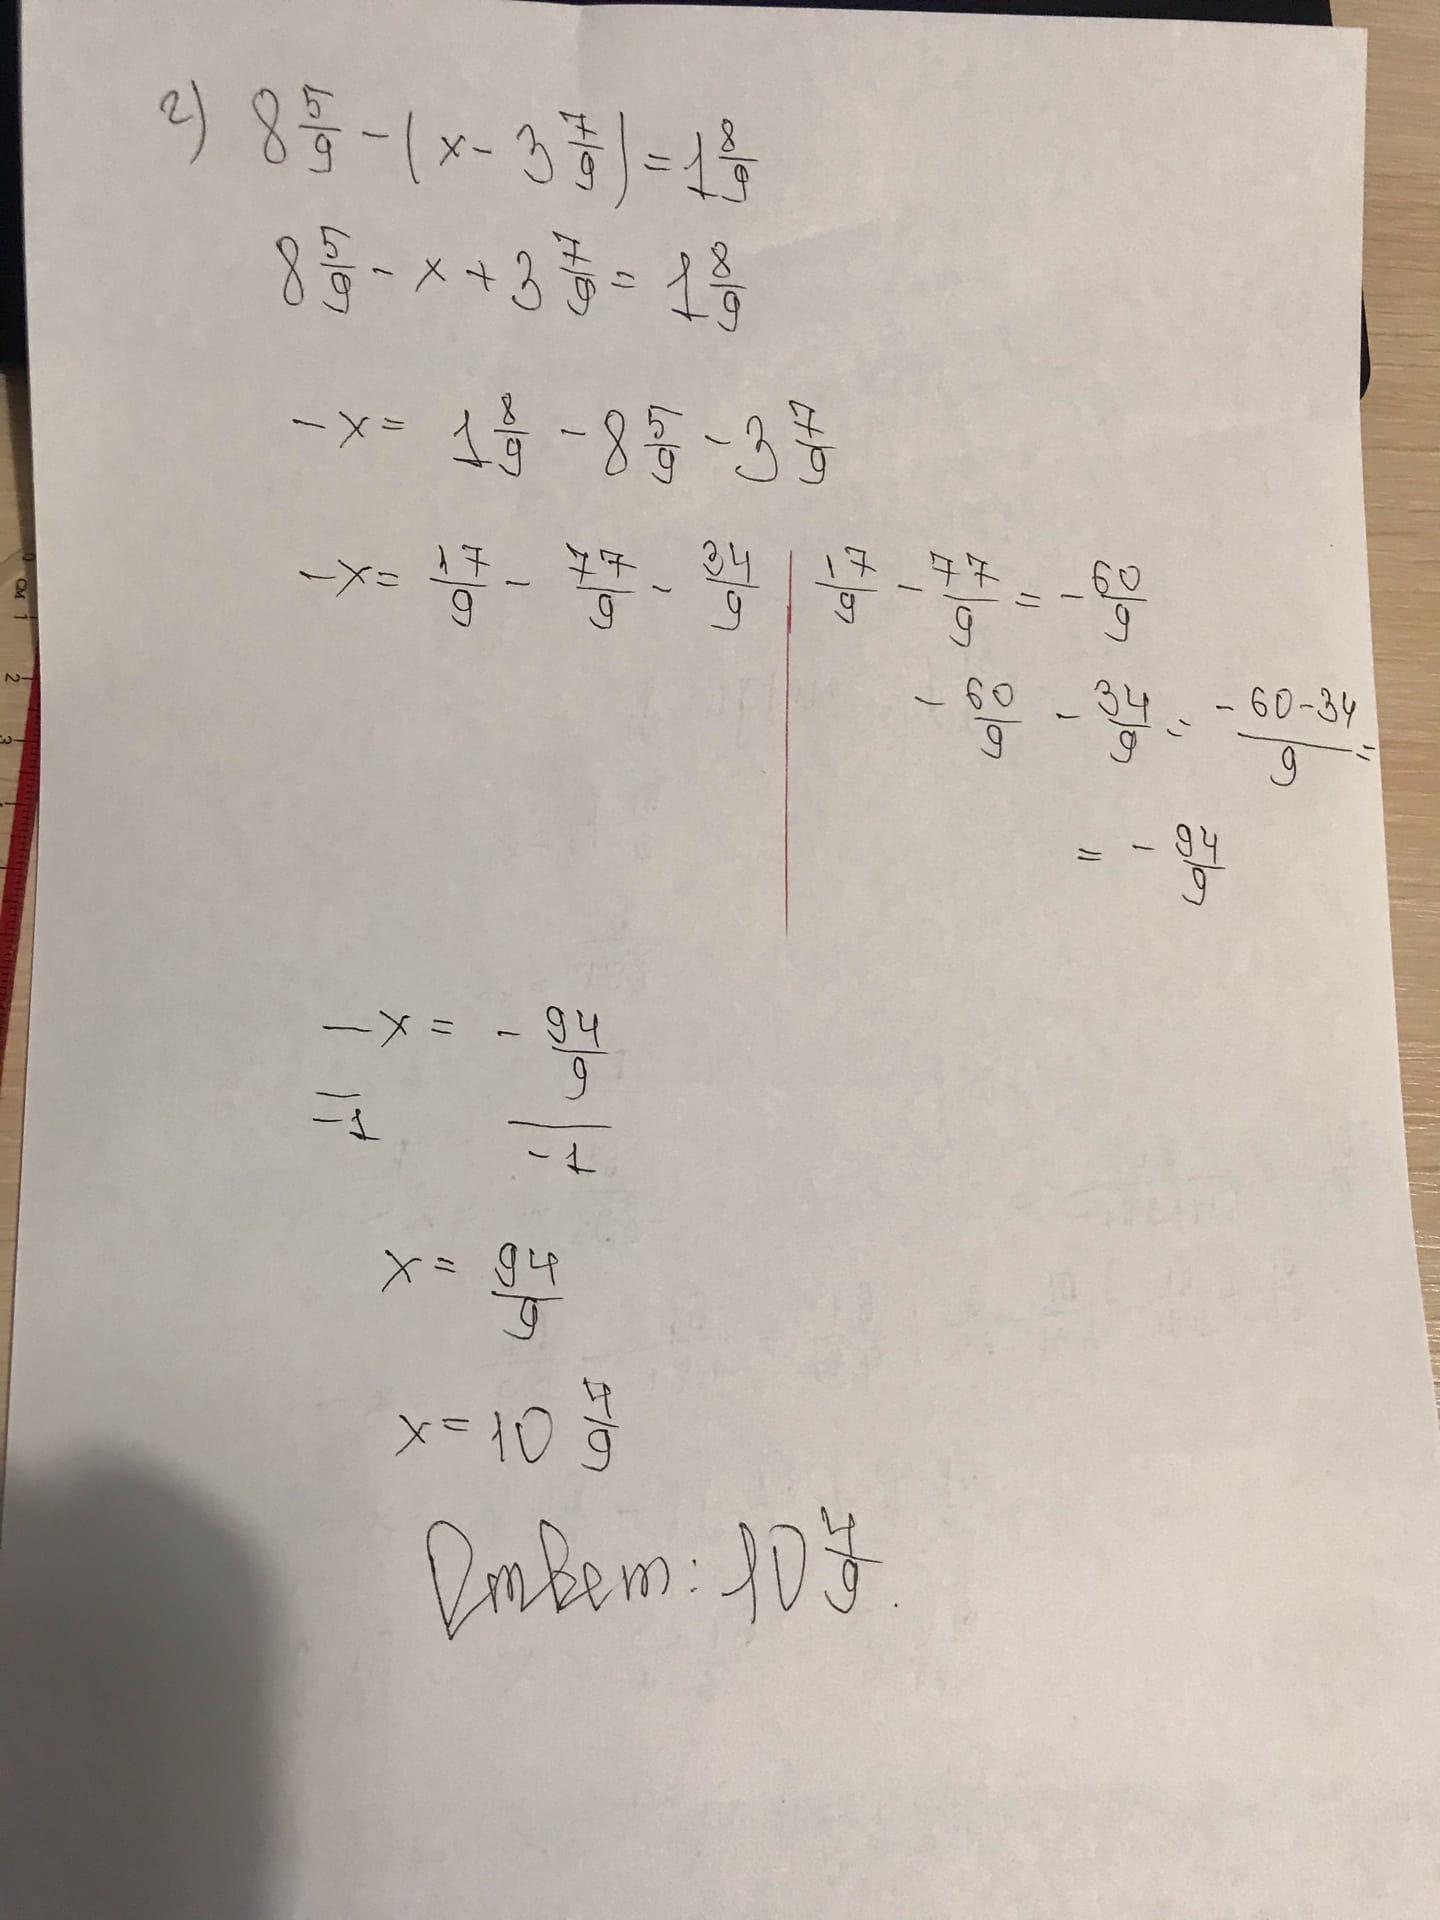 г) 8 5/9 - (x - 3 7/9) = 1 8/9
8 5/9 - x + 3 7/9 = 1 8/9
-x = 1 8/9 - 8 5/9 - 3 7/9
-x = 17/9 - 77/9 - 34/9 | 17/9 - 77/9 = -60/9
-60/9 - 34/9 = (-60-34)/9 =
= -94/9
-x = -94/9
-1 -1
x = 94/9
x = 10 4/9
Ответ: 10 4/9.
см 1
2
3